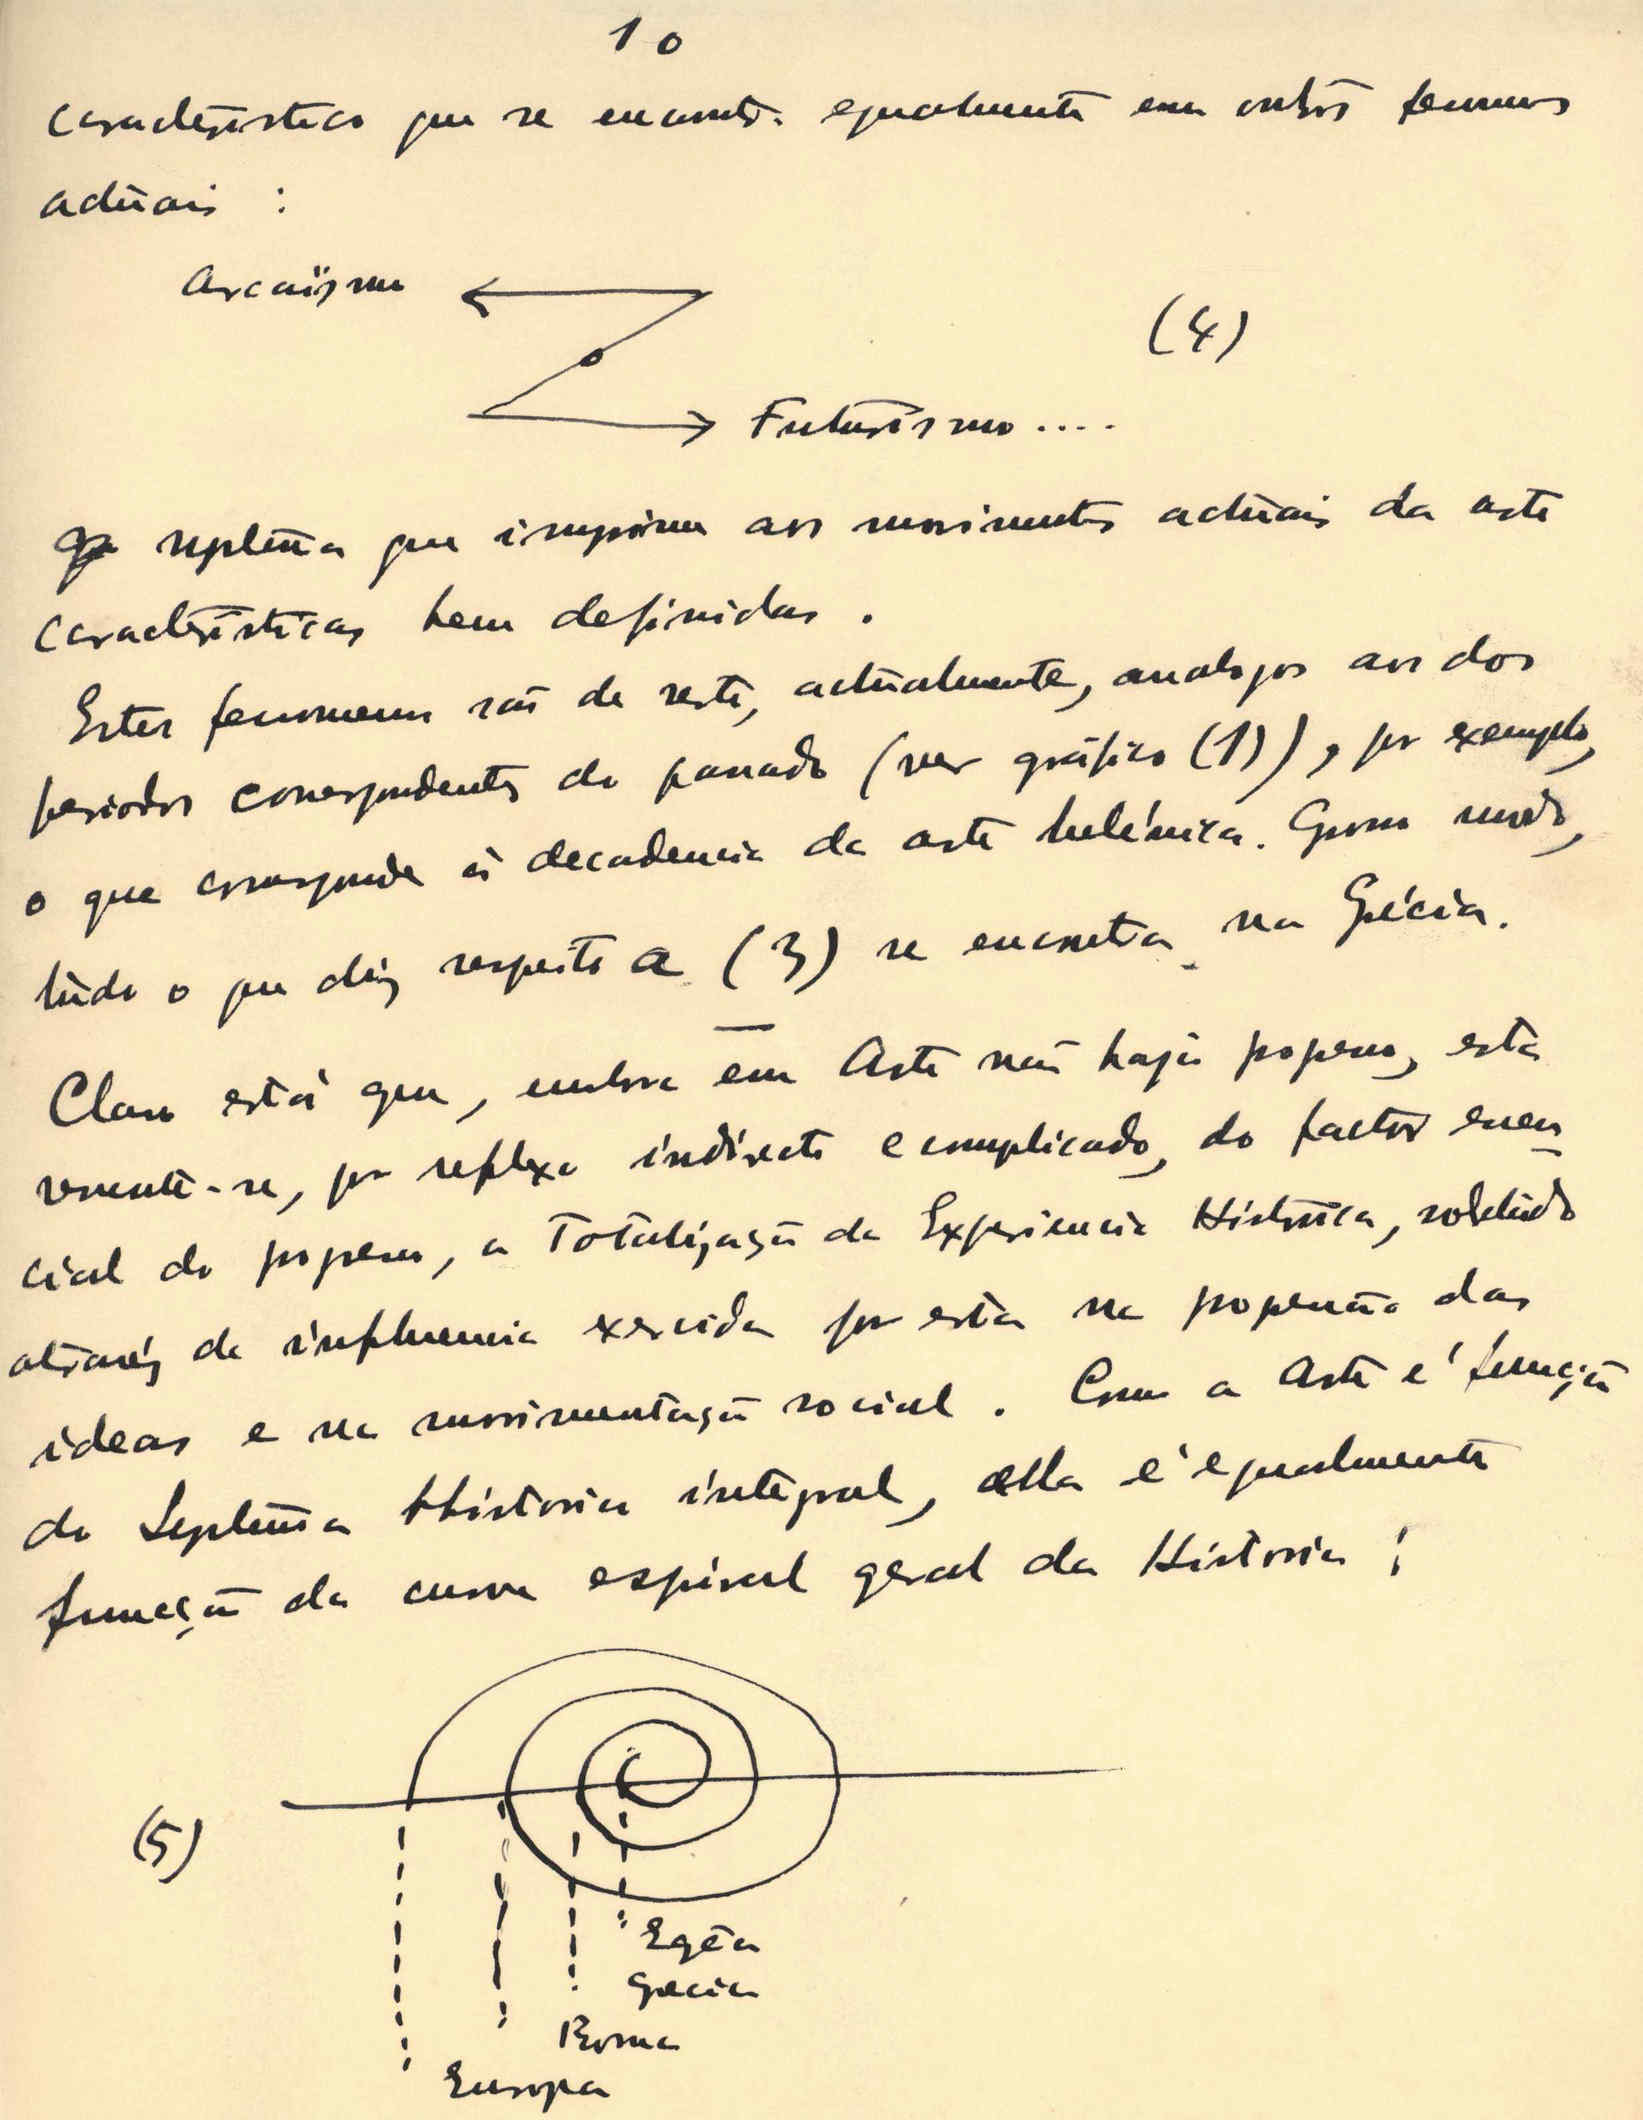 10
caracteristica que se encontra egualmente em outros fenomenos
actuais :
Arcaïsmo
(4)
Futurismo ....
ruptura que imprime aos movimentos actuais da arte
caracteristicas bem definidas .
Estes fenomenos são de resto, actualmente, analogos aos dos
periodos correspondentes do passado (ver gráfico (1)), por exemplo,
o que corresponde á decadencia da arte helénica. Grosso modo,
tudo o que diz respeito a (3) se encontra na Grécia.
Claro está que, embora em Arte não haja progresso, esta
resente-se, por reflexo indirecto e complicado, do factor essen-
cial do progresso, a Totalização da Experiencia Historica, sobretudo
através da influencia exercida por esta na das
ideas e na movimentação social . Como a Arte é função
da Historia integral, ella é egualmente
função da curva espiral geral da Historia ;
(5)
Egêa
Grecia
Roma
Europa